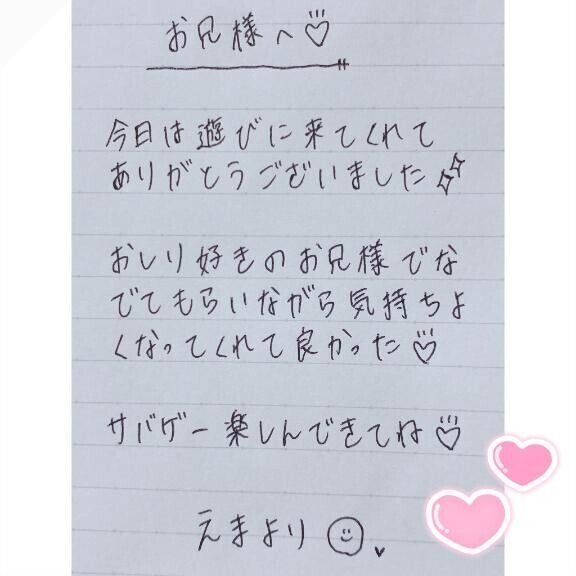 お兄様へ♡
今日は遊びに来てくれて
ありがとうございました✨
おしり好きのお兄様でな
でてもらいながら気持ちよ
くなってくれて良かった♡
サバゲー楽しんできてね♡
えまより☺♥